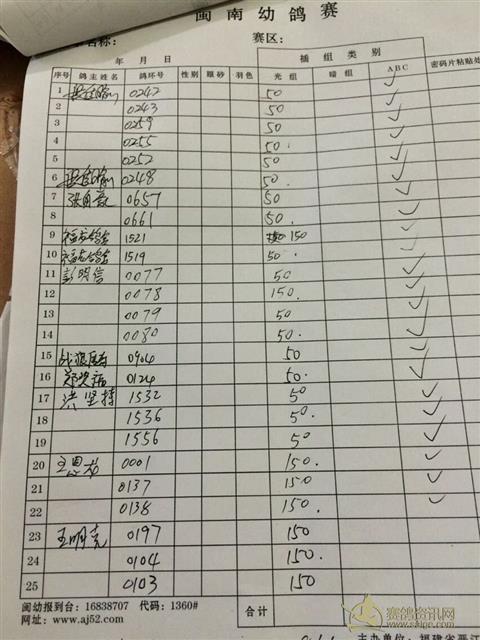 闽南幼鸽赛
名称： 赛区：
年 月 日 插组类别
序号 鸽主姓名 鸽环号 性别 眼砂 羽色 光组 暗组 ABC 密码片粘贴处
1 0242 50 ✓
2 0243 50 ✓
3 0259 50 ✓
4 0255 50 ✓
5 0252 50 ✓
6 0248 50 ✓
7 0657 50 ✓
8 0661 50 ✓
9 1521 150 ✓
10 1519 50 ✓
11 彭明信 0077 50 ✓
12 0078 150 ✓
13 0079 50 ✓
14 0080 50 ✓
15 0904 50 ✓
16 0124 50 ✓
17 洪坚持 1532 50 ✓
18 1536 50 ✓
19 1556 50 ✓
20 0001 150 ✓
21 0137 150 ✓
22 0138 150 ✓
23 王明亮 0197 150
24 0104 150
25 0103 150
闽幼报到台：16838707 代码：1360# 合计
网址：www.aj52.com 主办单位：福建省晋江
赛鸽资讯网